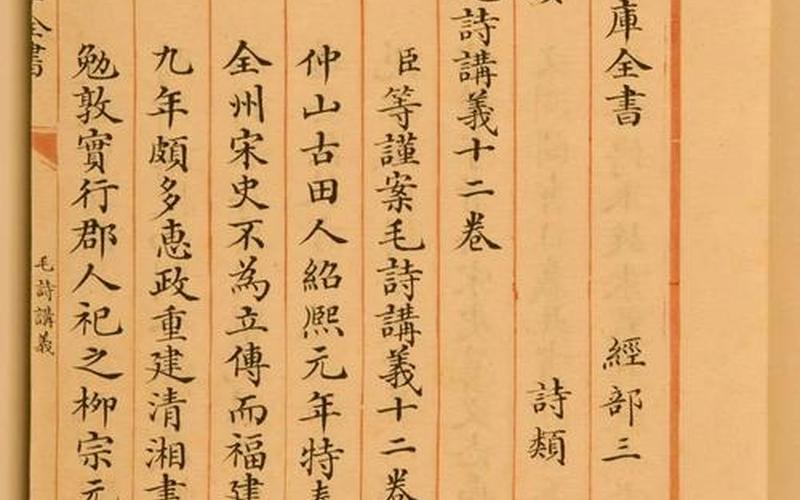 庫全書 經部三
詩類
詩講義十二卷
臣等謹案毛詩講義十二卷
仲山古田人紹熙元年特
全州宋史不為立傳而福建
九年頗多惠政重建清湘書
勉敦實行郡人祀之柳宗元
全書 毛詩講義